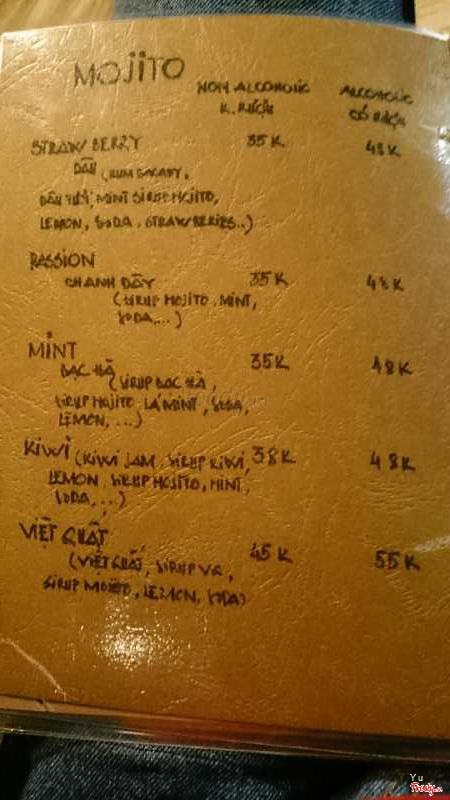 MOJITO
NON ALCOHOLIC
K. RƯỢU
ALCOHOLIC
CÓ RƯỢU
STRAWBERRY 35K 48K
DÂU (RUM BACADY,
DÂU TƯƠI, MINT SIRUP MOJITO,
LEMON, SODA, STRAWBERIES..)
PASSION
CHANH DÂY 35K 48K
(SIRUP MOJITO, MINT,
SODA,...)
MINT 35K 48K
BẠC HÀ (SIRUP BẠC HÀ,
SIRUP MOJITO LÁ MINT, SODA,
LEMON, ...)
KIWI (KIWI JAM, SIRUP KIWI, 38K 48K
LEMON, SIRUP MOJITO, MINT,
SODA,...)
VIỆT QUẤT 45K 55K
(VIỆT QUẤT, SIRUP VQ,
SIRUP MOJITO, LEMON, SODA)
Yu
Foody.vn